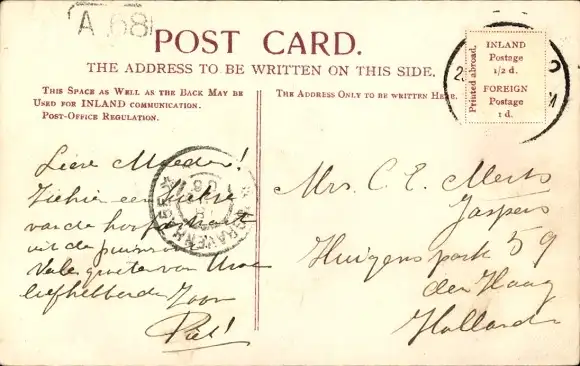 A 68
POST CARD.
THE ADDRESS TO BE WRITTEN ON THIS SIDE.
THIS SPACE AS WELL AS THE BACK MAY BE
USED FOR INLAND COMMUNICATION.
POST-OFFICE REGULATION.
THE ADDRESS ONLY TO BE WRITTEN HERE.
Printed abroad.
INLAND
Postage
1/2 d.
FOREIGN
Postage
1 d.
Lieve Moeder!
Ziehier een
van de
uit de
Vele groeten van Uwe
liefhebbende Zoon
Piet!
'S GRAVENHAGE
Mrs. C. E. Merts
Jaspers
Huigenspark 59
den Haag
Holland